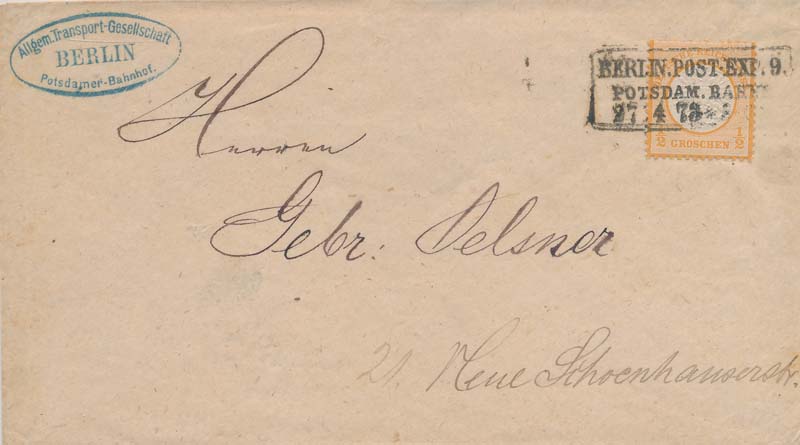 Allgem. Transport-Gesellschaft
BERLIN
Potsdamer-Bahnhof.
BERLIN. POST-EXP. 9.
POTSDAM. BAHN
27 4 73
½ GROSCHEN ½
Herren
Gebr: Oelsner
21. Neue Schoenhauserstr.